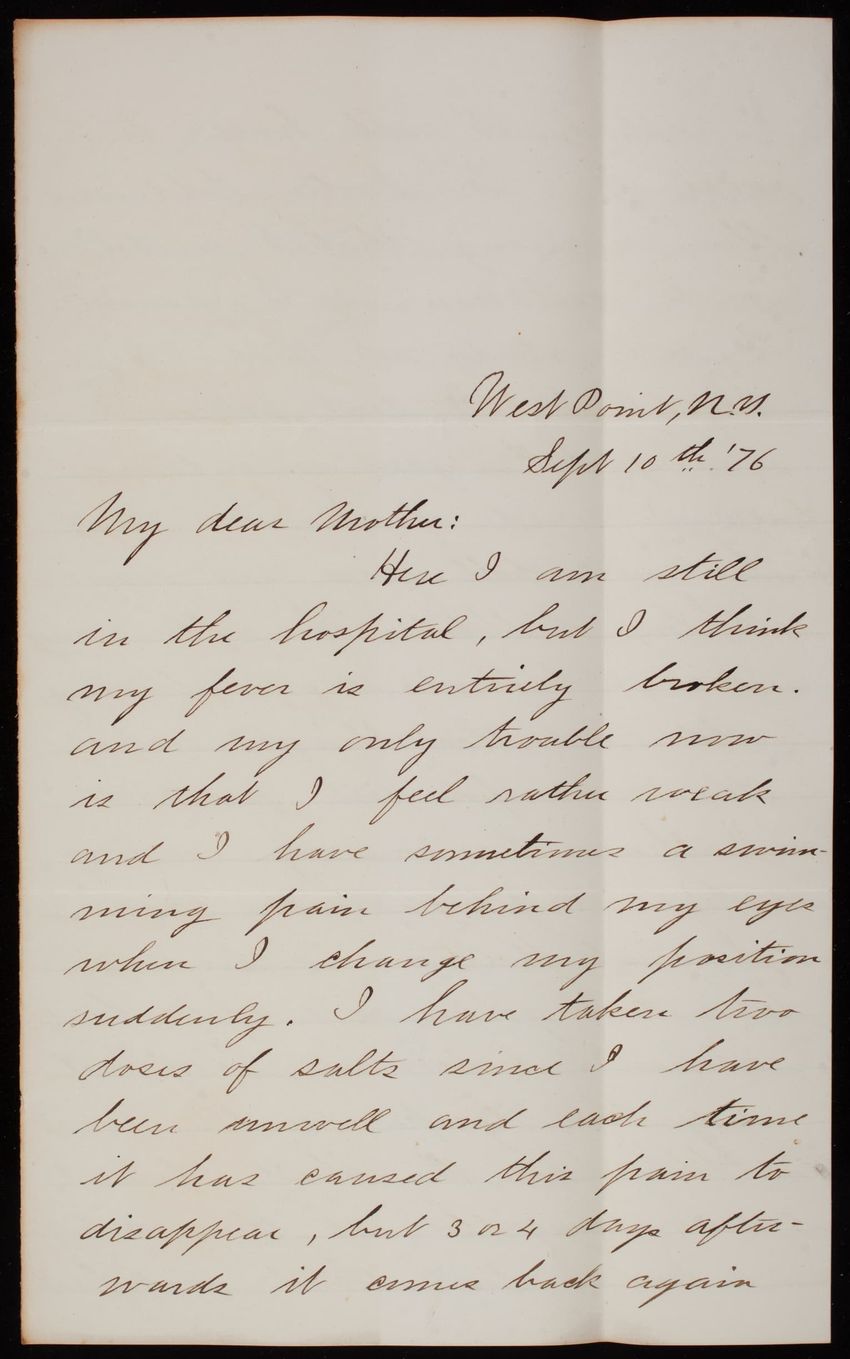 West Point, N.Y.
Sept 10th '76
My dear Mother:
Here I am still
in the hospital, but I think
my fever is entirely broken.
and my only trouble now
is that I feel rather weak
and I have sometimes a swim-
ming pain behind my eyes
when I change my position
suddenly. I have taken two
doses of salts since I have
been unwell and each time
it has caused this pain to
disappear, but 3 or 4 days after-
wards it comes back again